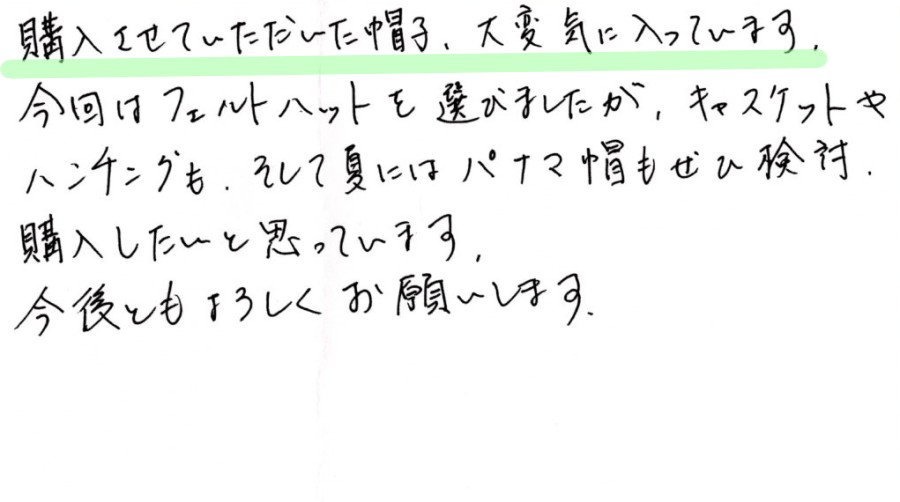 購入させていただいた帽子、大変気に入っています。
今回はフェルトハットを選びましたが、キャスケットや
ハンチングも、そして夏にはパナマ帽もぜひ検討、
購入したいと思っています。
今後ともよろしくお願いします。